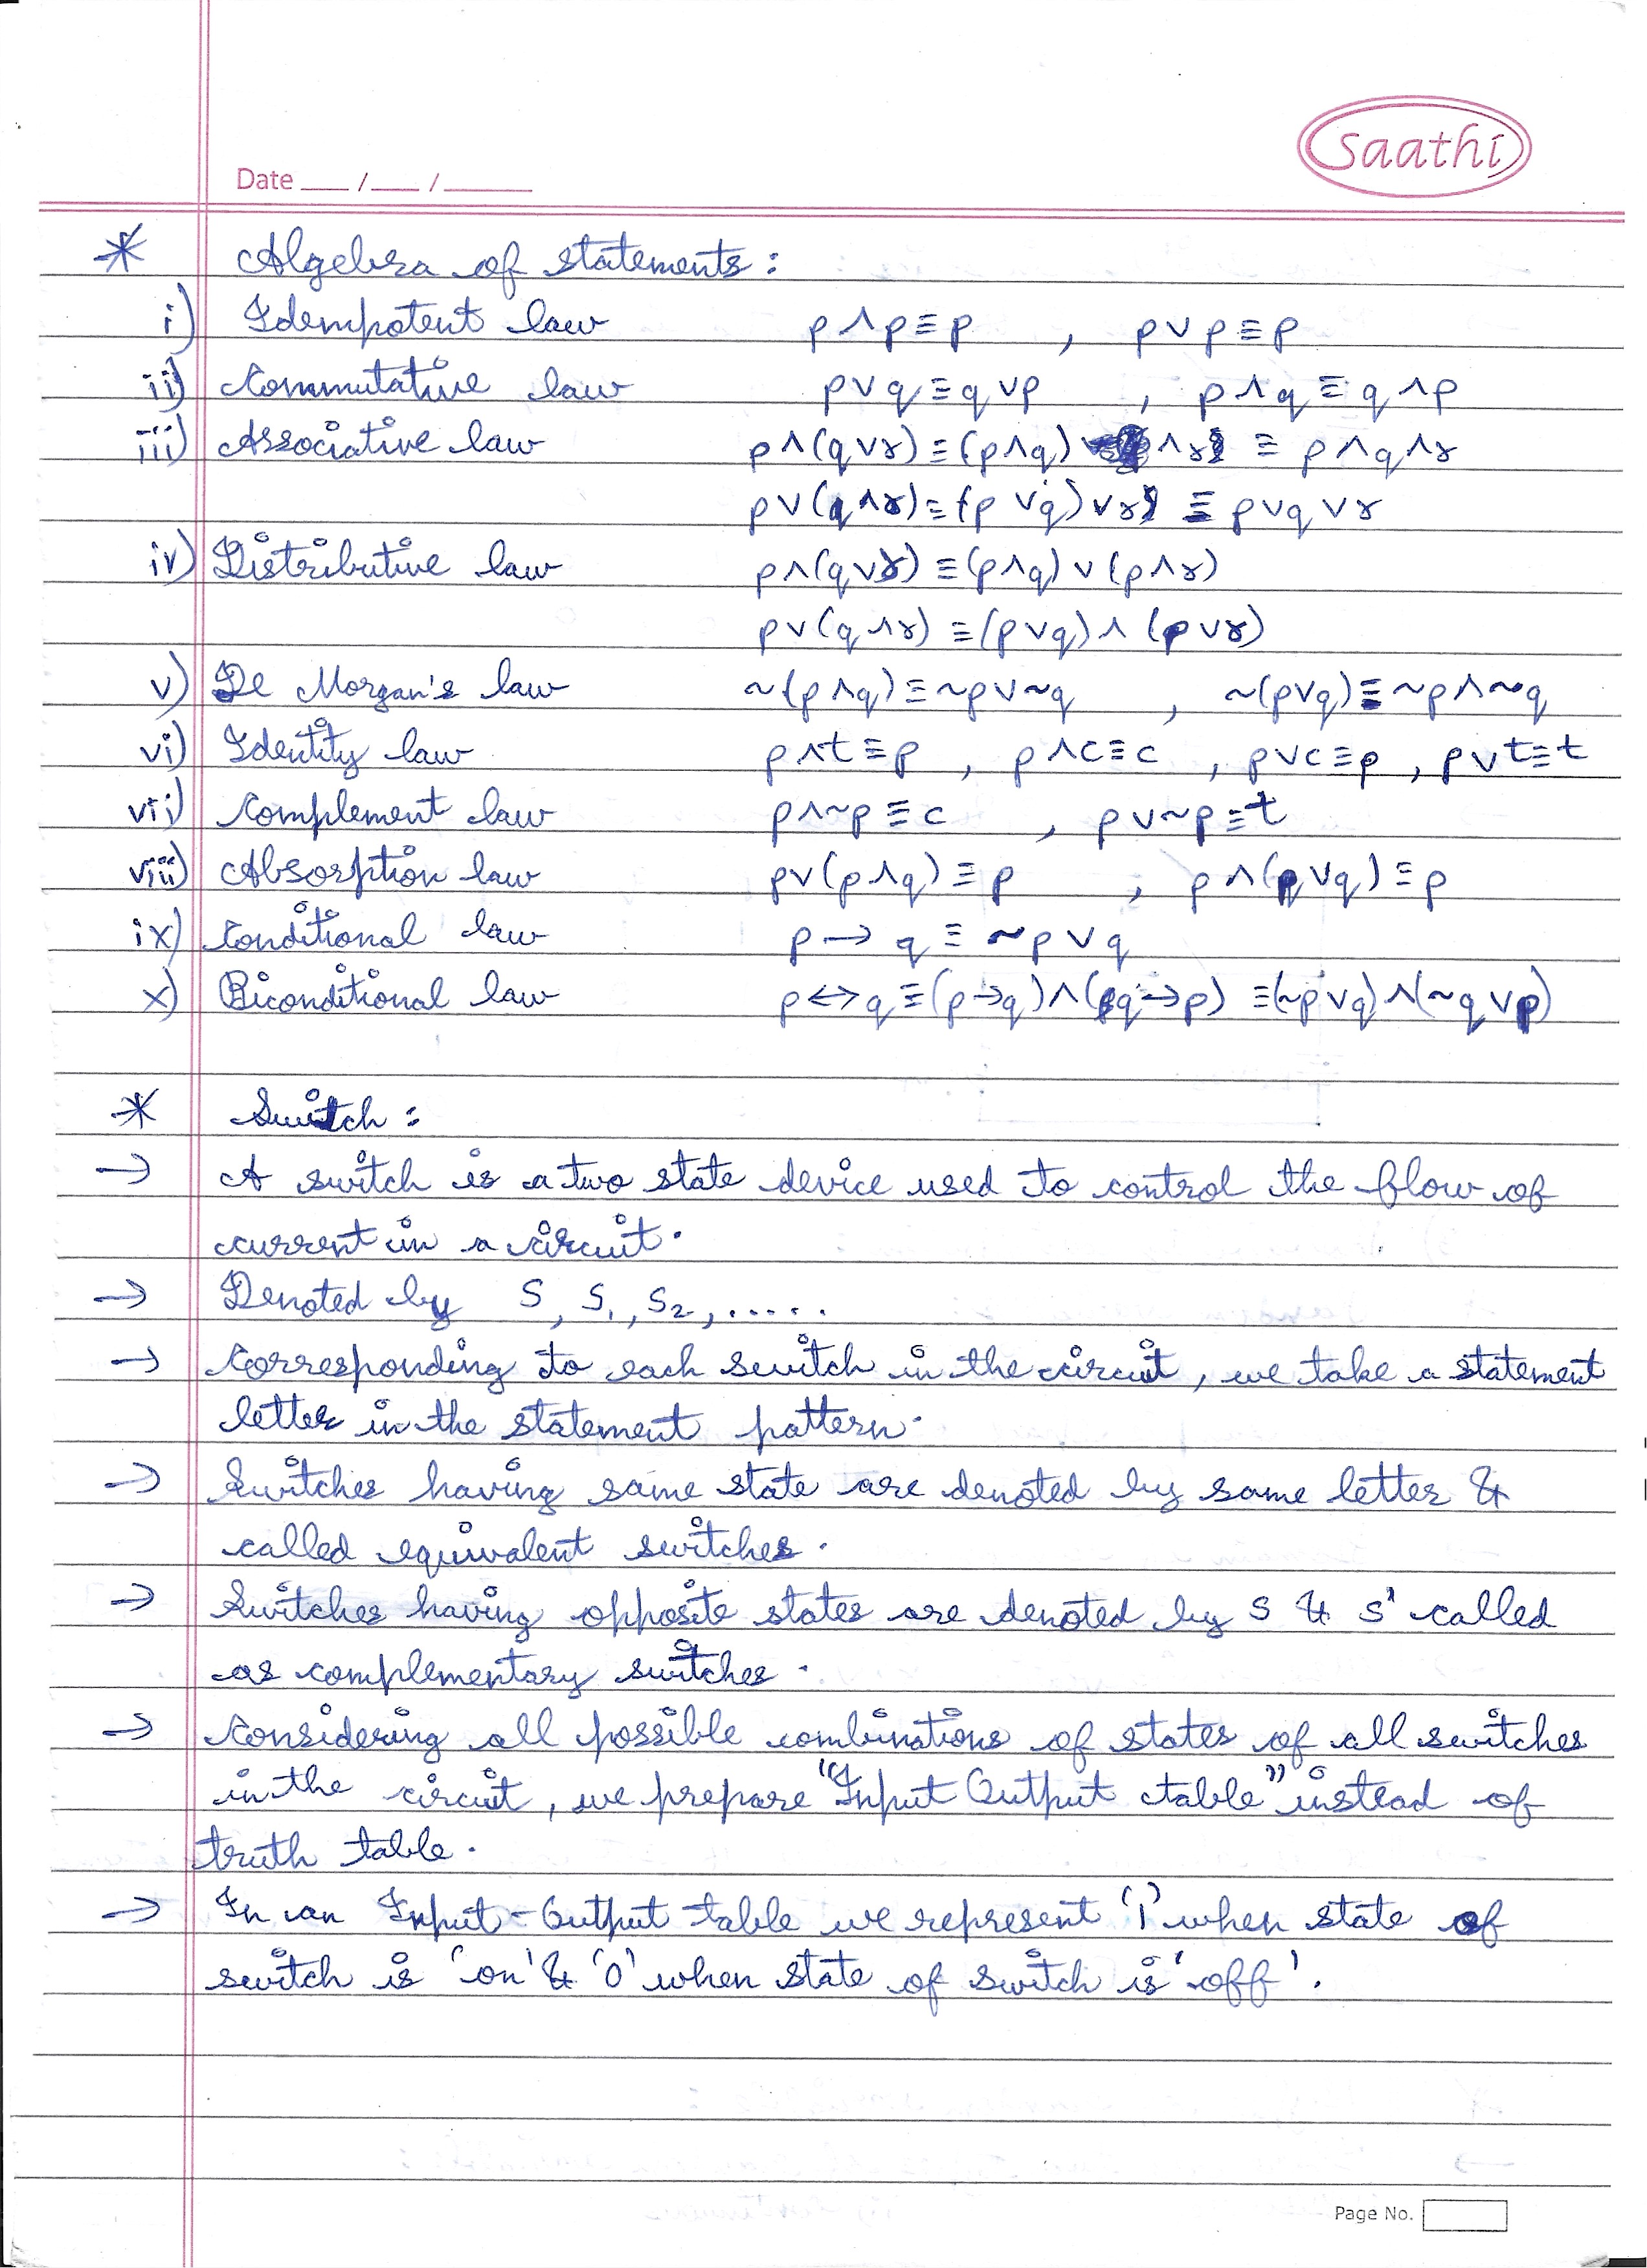 saathi
Date ___ / ___ / ______
* Algebra of statements :
i) Idempotent law p ∧ p ≡ p , p ∨ p ≡ p
ii) Commutative law p ∨ q ≡ q ∨ p , p ∧ q ≡ q ∧ p
iii) Associative law p ∧ (q ∨ r) ≡ (p ∧ q) ∧ r ≡ p ∧ q ∧ r
p ∨ (q ∧ r) ≡ (p ∨ q) ∨ r ≡ p ∨ q ∨ r
iv) Distributive law p ∧ (q ∨ r) ≡ (p ∧ q) ∨ (p ∧ r)
p ∨ (q ∧ r) ≡ (p ∨ q) ∧ (p ∨ r)
v) De Morgan's law ~(p ∧ q) ≡ ~p ∨ ~q , ~(p ∨ q) ≡ ~p ∧ ~q
vi) Identity law p ∧ t ≡ p , p ∧ c ≡ c , p ∨ c ≡ p , p ∨ t ≡ t
vii) Complement law p ∧ ~p ≡ c , p ∨ ~p ≡ t
viii) Absorption law p ∨ (p ∧ q) ≡ p , p ∧ (p ∨ q) ≡ p
ix) Conditional law p → q ≡ ~p ∨ q
x) Biconditional law p ↔ q ≡ (p → q) ∧ (q → p) ≡ (~p ∨ q) ∧ (~q ∨ p)
* Switch :
→ A switch is a two state device used to control the flow of
current in a circuit.
→ Denoted by S, S₁, S₂, .....
→ Corresponding to each switch in the circuit, we take a statement
letter in the statement pattern.
→ Switches having same state are denoted by same letter &
called equivalent switches.
→ Switches having opposite states are denoted by S & S' called
as complementary switches.
→ Considering all possible combinations of states of all switches
in the circuit, we prepare "Input Output table" instead of
truth table.
→ In an Input-Output table we represent '1' when state of
switch is 'on' & '0' when state of switch is 'off'.
Page No.